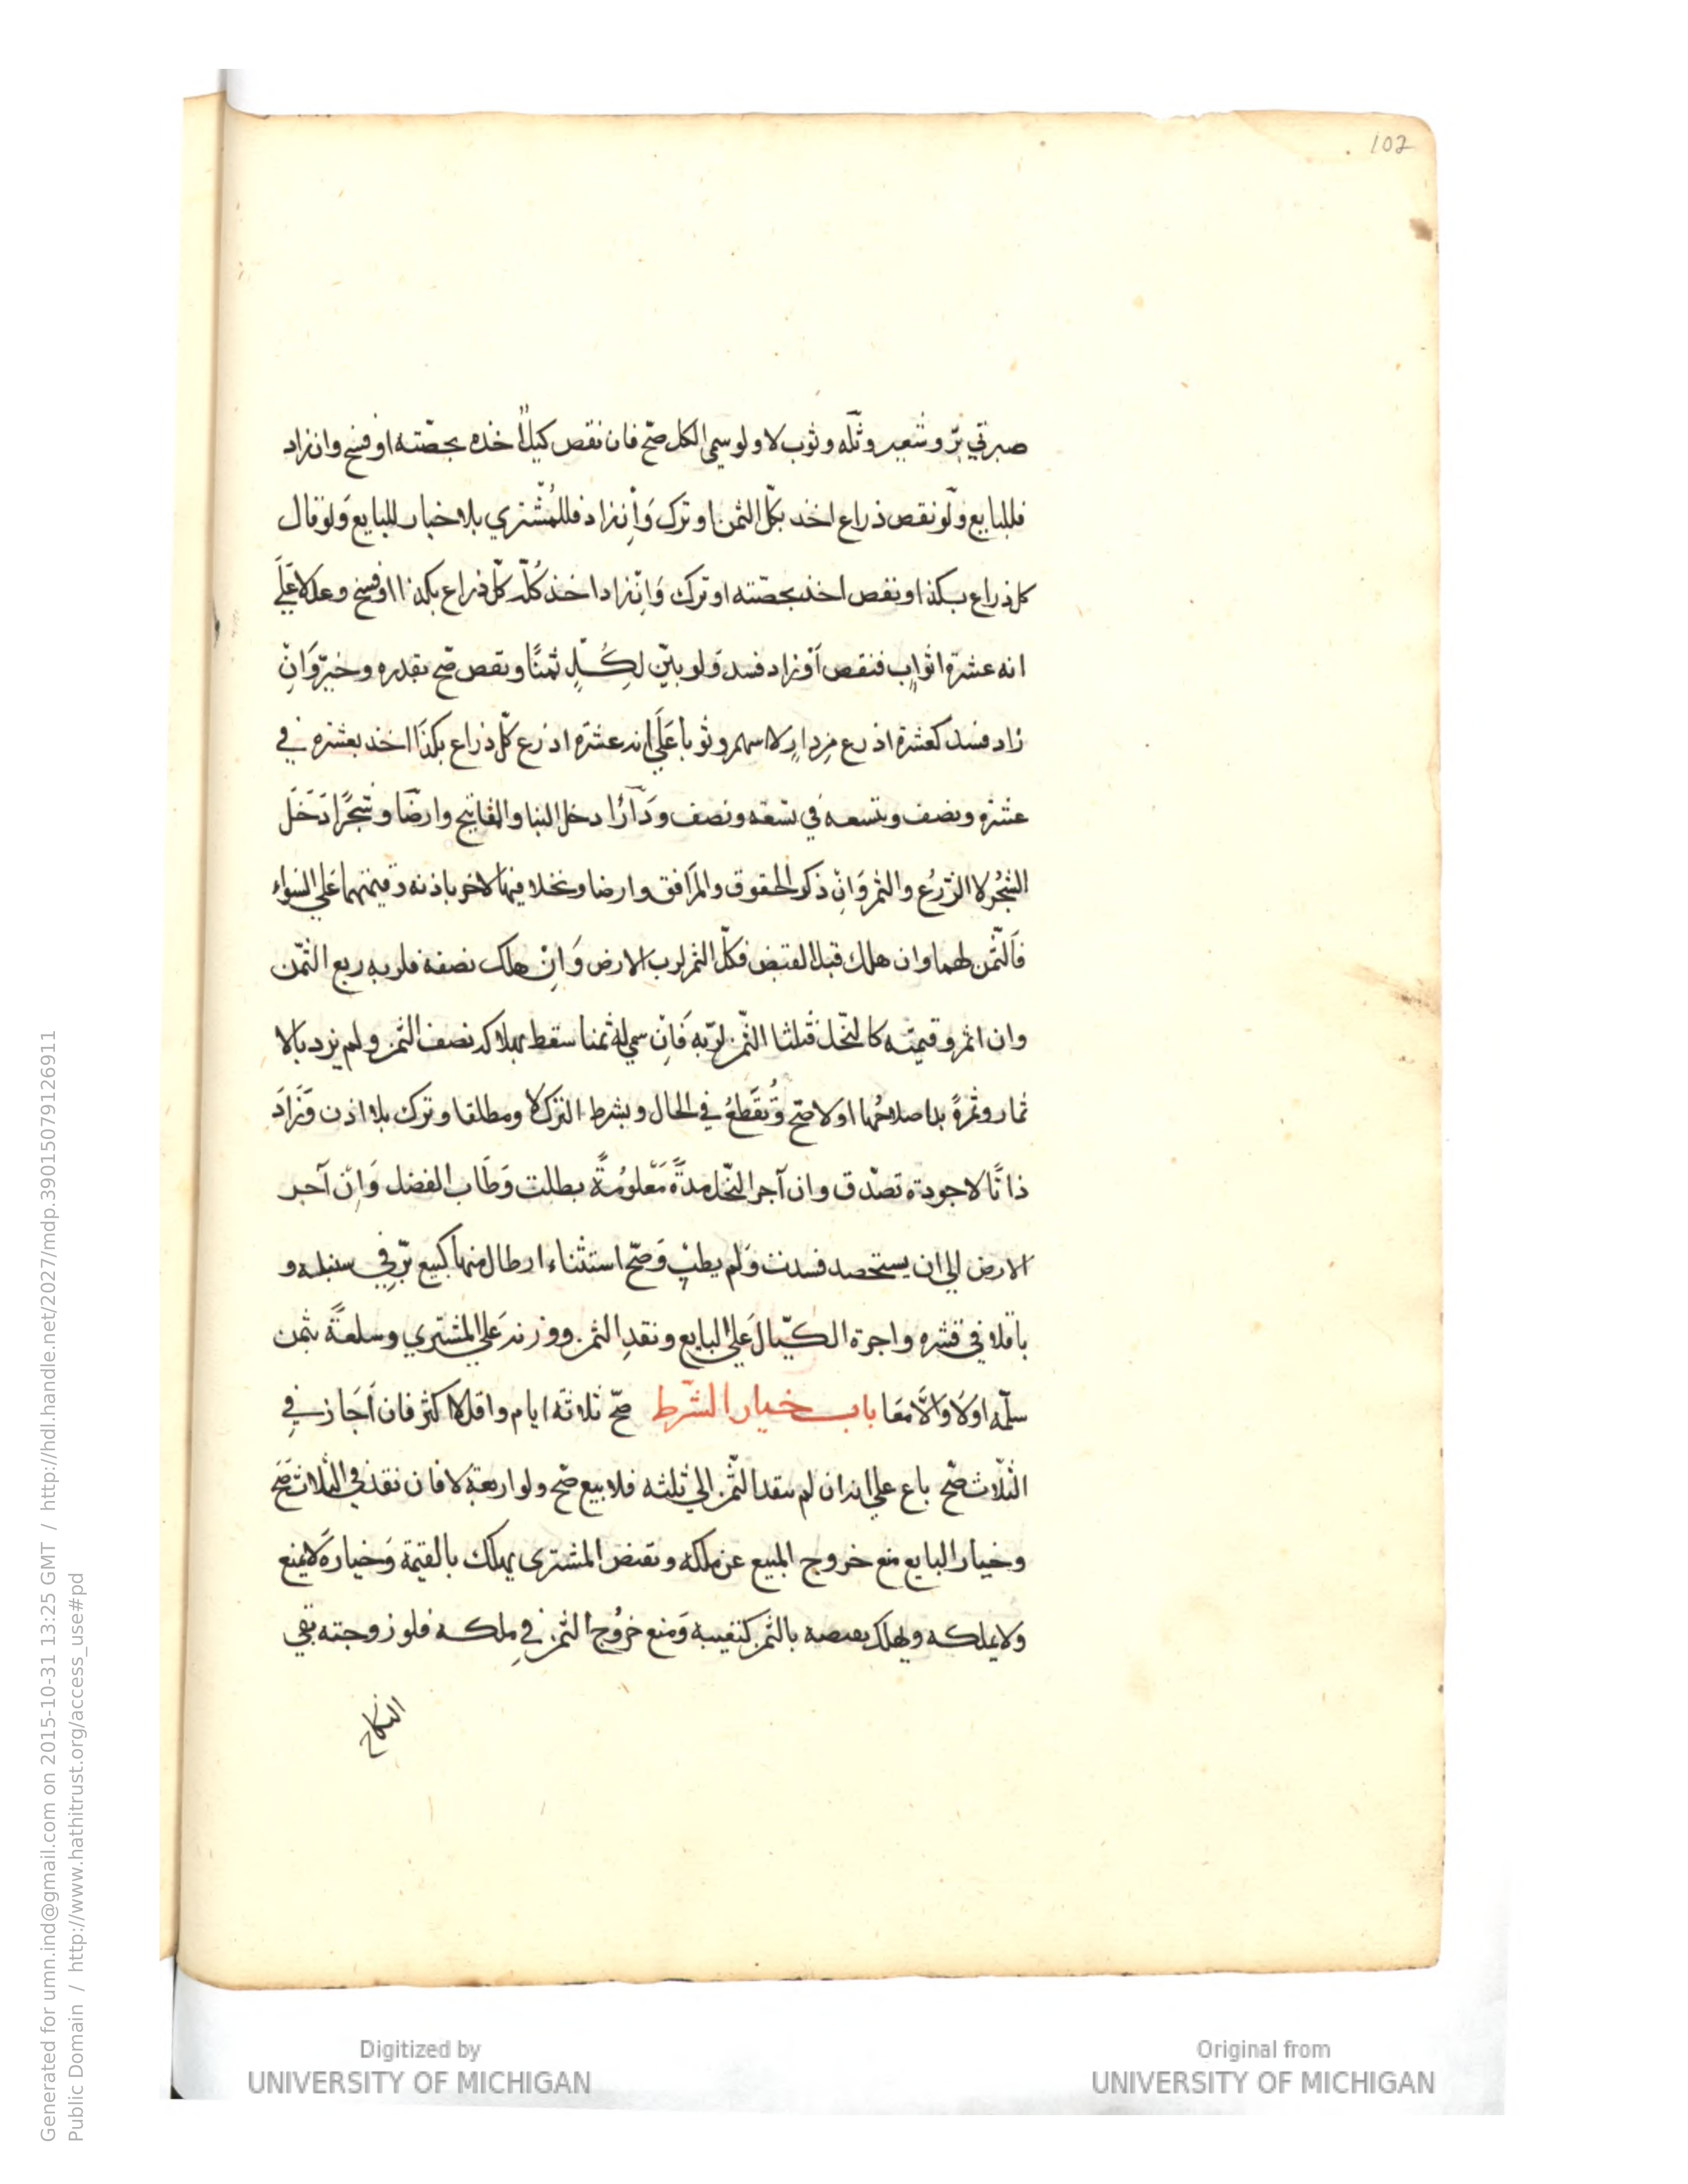 102
صبرتي برّ وشعير وثلّه وثوب لا ولو سمى الكل صحّ فان نقص كيلاً اخذه بحصّته او فسخ وان زاد
فللبايع ولَو نقص ذراع اخذ بكلّ الثمن او ترك وَاِن زاد فللمُشتري بلا خيار للبايع وَلو قال
كل ذراع بكذا ونقص اخذ بحصّته او ترك وَاِن زاد اخذ كُلّه كلّ ذراع بكذا او فسخ وعدلا عَلَي
انه عشرة اثواب فنقص اَو زاد فسد وَلو بيّن لِكُلٍّ ثمنًا ونقص صحّ بقدره وخيّر وَاِن
زاد فسد كعشرة اذرع مِن دارٍ لا اسهم وثوبا عَلَي انه عشرة اذرع كلّ ذراع بكذا اخذ بعشره في
عشره ونصف وبتسعه في تسعه ونصف وَدَارًا دخل البنا والمفاتيح وارضًا وشَجرًا دَخَل
الشجُر لا الزَرُع والثمر وَاِن ذكر الحقوق والمَرافق وارضا ونخلا فيها لاخر باذنه وقيمتهما عَلي السَواء
فَالثّمن لهما وان هلك قبل القبض فكلّ الثمن لرب الارض وَاِنْ هلك نصفه فلربه ربع الثمّن
وان اثمر وقيمته كالنّخل فثلثا الثّمن لربّه فَاِن سمي له ثمنا سقط بهلاكه نصف الثمن ولم يزد بالا
ثمار وثمرةً بدا صلاحُها او لا صَح وَتُقَطعُ في الحال وبشرط الترك لا ومطلقا وترك بلا اذن وَزَادَ
ذاتًا لا جودة تصدّق وان آجر النخّل مدةً مَعْلومُةً بطلت وَطَاب الفضل وَاِن آجر
الارض الي ان يستحصد فسدت وَلم يطب وَصحّ استثناء ارطال منها كبيع برّ في سنبله و
باقلا في قشره واجرة الكيّال عَلي البايع ونقدِ الثمن ووزنه عَلي المشتري وسلعةً بثمن
سلّمه اوَلا وَاِلَّا مَعَا باب خيار الشّرط صحّ ثلاثَه ايام واقل لا اكثر فان اَجَازَ في
الثلّاث صحّ باع علي انه ان لم ينقد الثّمن الي ثلثه فلا بيع صحّ ولو اربعة لا فان نقد في الثلاث صَح
وخيار البايع منع خروج المبيع عن ملكه وبقبض المشترى يهلك بالقيمة وَخيارهُ لا يمنع
ولا يملكه ويهلك بقبضه بالثمن كتعيبه وَمنع خرُوج الثمن في ملكه فلو زوجته بقي
النكاح
Generated for umn.ind@gmail.com on 2015-10-31 13:25 GMT / http://hdl.handle.net/2027/mdp.39015079126911
Public Domain / http://www.hathitrust.org/access_use#pd
Digitized by
UNIVERSITY OF MICHIGAN
Original from
UNIVERSITY OF MICHIGAN